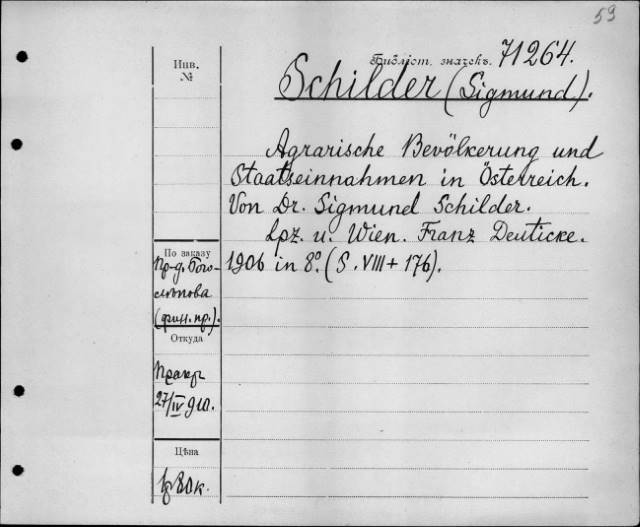 59
Библіот. значекъ. 71264.
Инв.
№
Schilder (Sigmund).
Agrarische Bevölkerung und
Staatseinnahmen in Österreich.
Von Dr. Sigmund Schilder.
Lpz. u. Wien. Franz Deuticke.
1906 in 8º. (S. VIII + 176).
По заказу
Пр-д. Бого-
лѣпова
(фин. пр.).
Откуда
27/IV 910.
Цѣна
80к.